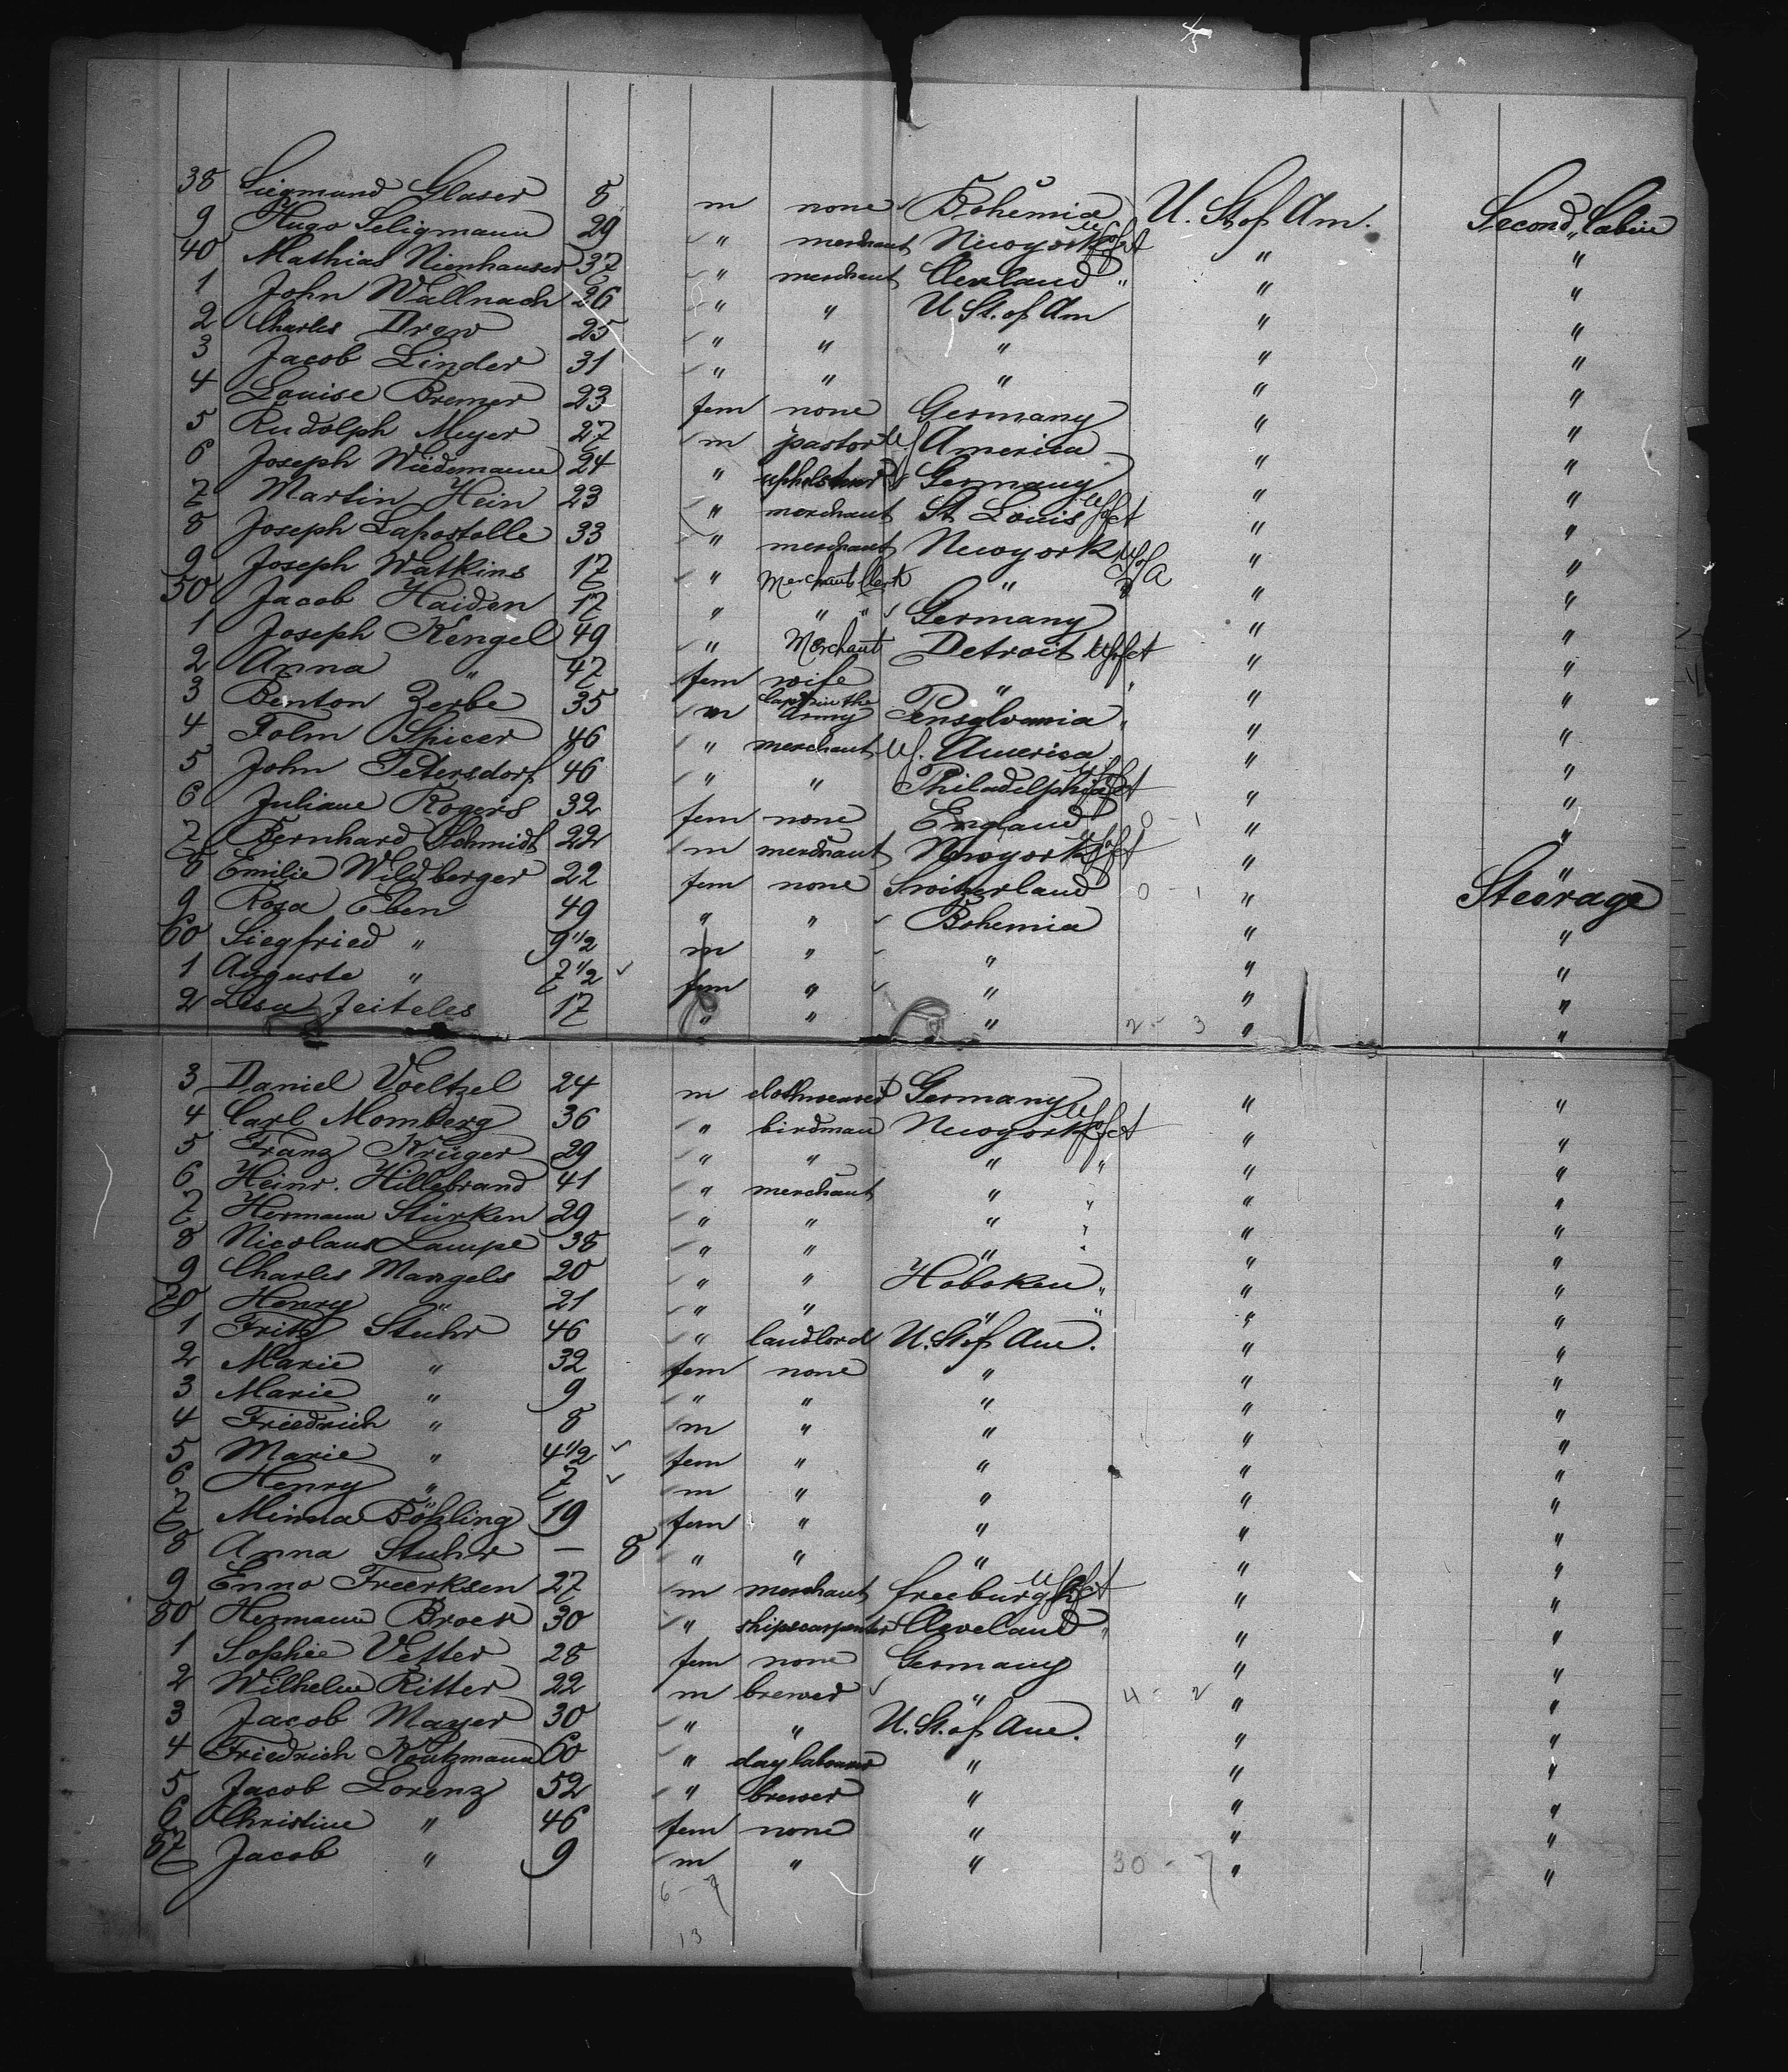 38 Siegmund Glaser 8 m none Bohemia U. St of Am. Second Cabin
9 Hugo Seligmann 29 " merchant Newyork U S of A " "
40 Mathias Nienhauser 37 " merchant Clevland " " "
1 John Wallnach 26 " " U St. of Am " "
2 Charles Drew 25 " " " " "
3 Jacob Linder 31 " " " " "
4 Louise Bremer 23 fem none Germany " "
5 Rudolph Meyer 27 m pastor U S America " "
6 Joseph Wiedemann 24 " Germany " "
7 Martin Hein 23 " merchant St Louis U S of A " "
8 Joseph Lapostolle 33 " merchant Newyork U S of A " "
9 Joseph Watkins 17 " Merchant Clerk " " " "
50 Jacob Haiden 17 " " " Germany " "
1 Joseph Kengel 49 " Merchant Detroit U S of A " "
2 Anna " 47 fem wife " " " "
3 Benton Zerbe 35 m Capt in the Army Pensylvania " " "
4 Folm Spicer 46 " merchant U S. America " "
5 John Petersdorf 46 " " Philadelphia U S of A " "
6 Juliane Rogers 32 fem none England 0 - 1 " "
7 Bernhard Schmidt 22 m merchant Newyork U S of A " "
8 Emilie Wildberger 22 fem none Switzerland 0 - 1 " Steerage
9 Rosa Eben 49 " " Bohemia " "
60 Siegfried " 9 1/2 m " " " "
1 Auguste " 7 1/2 fem " " " "
2 Lisa Jeiteles 17 " " " 2 - 3 " "
3 Daniel Voeltzel 24 m Germany " "
4 Carl Momberg 36 " birdman Newyork U S of A " "
5 Franz Krüger 29 " " " " " "
6 Heinr. Hillebrand 41 " merchant " " " "
7 Hermann Stürken 29 " " " " " "
8 Nicolaus Lampe 38 " " " " " "
9 Charles Mangels 20 " " Hoboken " " "
70 Henry " 21 " " " " " "
1 Fritz Stuhr 46 " landlord U. St of Am. " "
2 Marie " 32 fem none " " "
3 Marie " 9 " " " " "
4 Friedrich " 8 m " " " "
5 Marie " 4 1/2 fem " " " "
6 Henry " 7 m " " " "
7 Minna Böhling 19 fem " " " "
8 Anna Stuhr — 8 " " " " "
9 Enno Freerksen 27 m merchant freeburgh U S of A " "
80 Hermann Broer 30 " shipscarpenter Cleveland " " "
1 Sophie Vetter 28 fem none Germany " "
2 Wilhelm Ritter 22 m brewer " 4 - 2 " "
3 Jacob Mayer 30 " " U. St. of Am. " "
4 Friedrich Koutzmann 60 " daylabourer " " "
5 Jacob Lorenz 52 " brewer " " "
6 Christine " 46 fem none " " "
87 Jacob " 9 m " " 30 - 7 " "
6 - 7
13